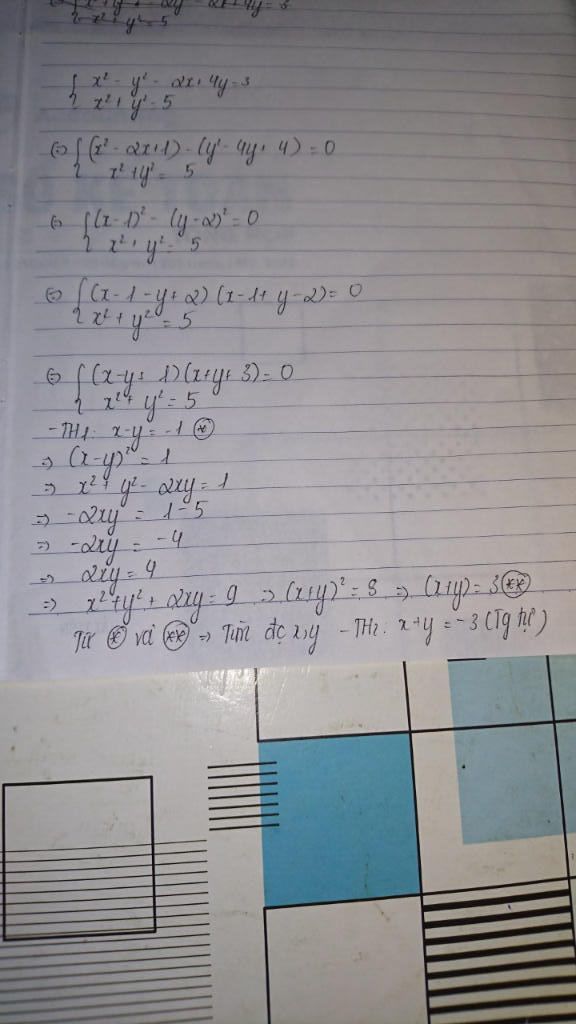 x² - y² - 2x + 4y = 3
x² + y² = 5
x² - y² - 2x + 4y = 3
x² + y² = 5
(=) (x² - 2x + 1) - (y² - 4y + 4) = 0
x² + y² = 5
(=) (x-1)² - (y-2)² = 0
x² + y² = 5
(=) (x - 1 - y + 2)(x - 1 + y - 2) = 0
x² + y² = 5
(=) (x - y + 1)(x + y + 3) = 0
x² + y² = 5
- TH1: x - y = -1 (*)
=> (x - y)² = 1
=> x² + y² - 2xy = 1
=> -2xy = 1 - 5
=> -2xy = -4
=> 2xy = 4
=> x² + y² + 2xy = 9 => (x+y)² = 9 => (x+y) = 3 (**)
Từ (*) và (**) => Tìm đc x,y - TH2: x + y = -3 (Tg tự)